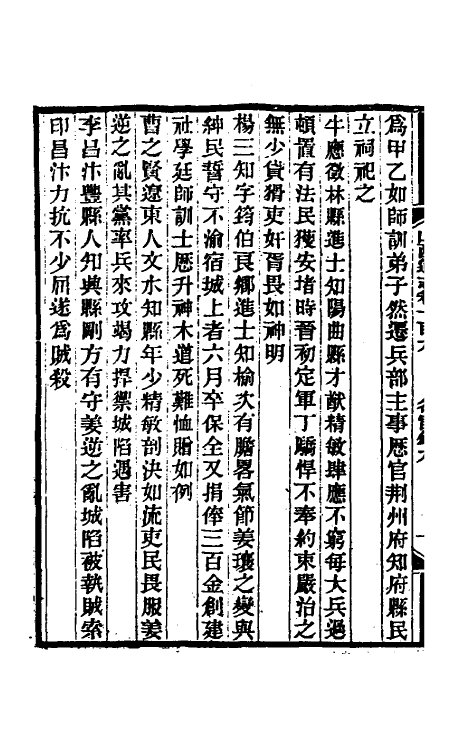 爲甲乙如師訓弟子然遷兵部主事歷官荆州府知府縣民
立祠祀之
牛應徵林縣進士知陽曲縣才猷精敏肆應不窮每大兵過
頓置有法民獲安堵時晉初定軍丁驕悍不奉約束嚴治之
無少貸猾吏奸胥畏如神明
楊三知字筠伯良鄉進士知榆次有膽畧氣節姜瓖之變與
紳民誓守不渝宿城上者六月卒保全又捐俸三百金創建
社學廷師訓士歷升神木道死難恤贈如例
曹之賢遼東人文水知縣年少精敏剖決如流吏民畏服姜
逆之亂其黨率兵來攻竭力捍禦城陷遇害
李昌汴豐縣人知典縣剛方有守姜逆之亂城陷被執賊索
印昌汴力抗不少屈遂爲賊殺